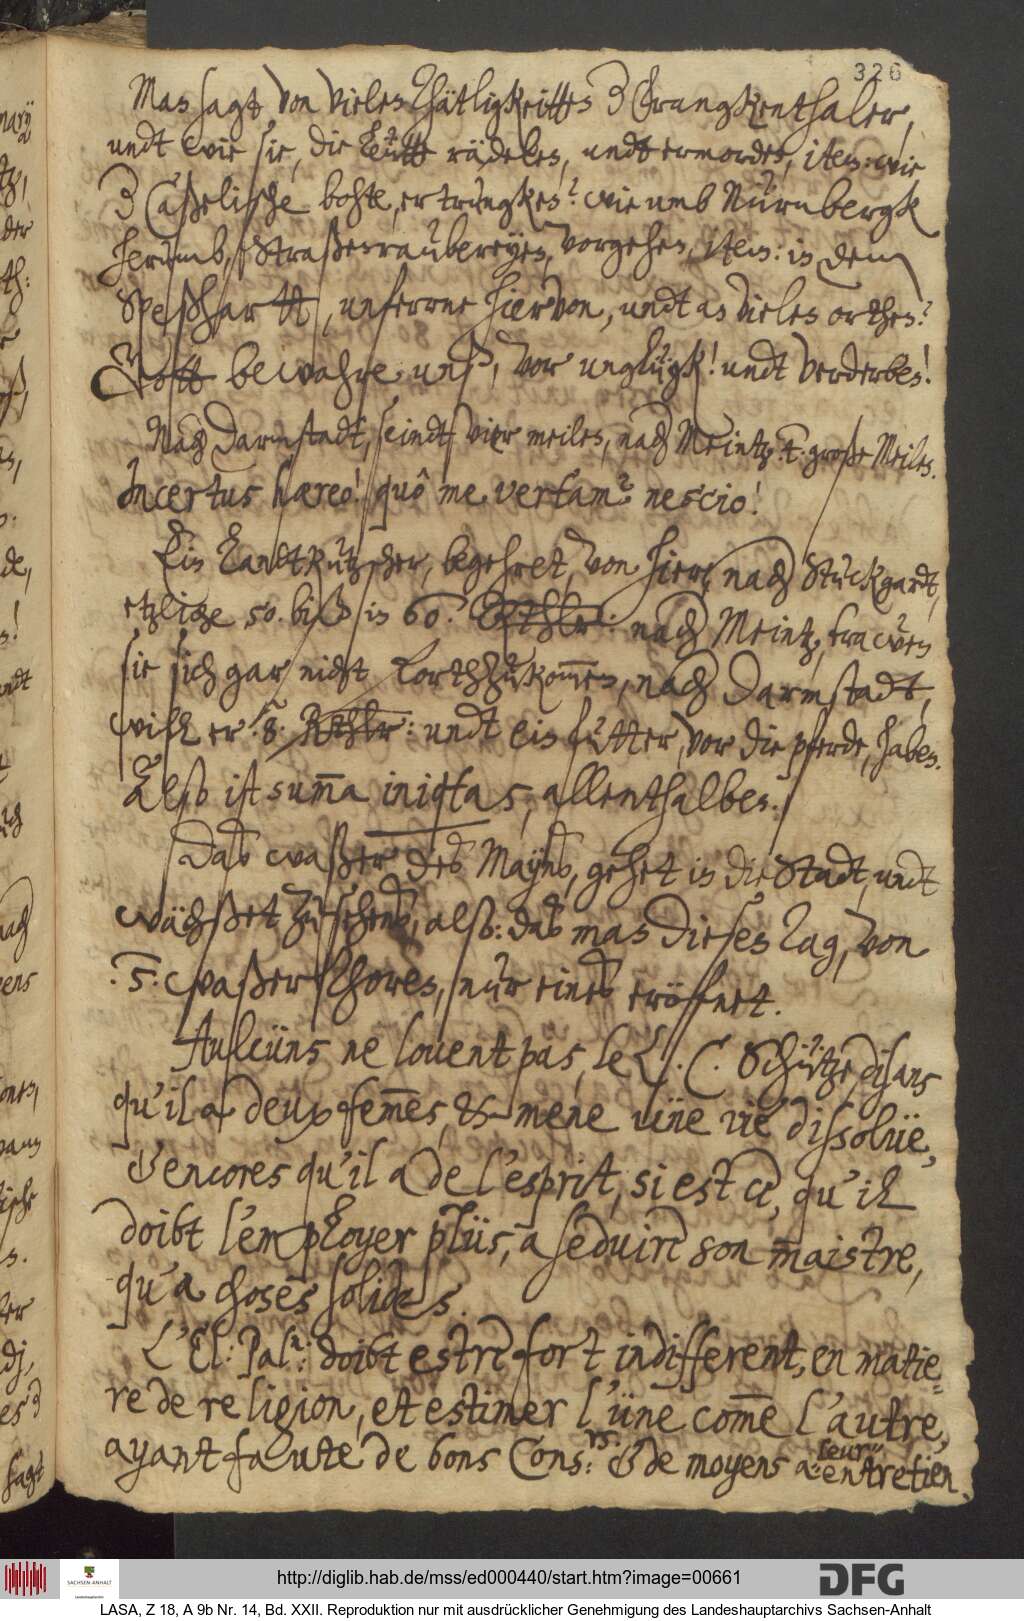 326
Man sagt von vielen thätligkeitten 3 Frangkenthaler,
undt wie sie, die Leütt rädelen, undt ermorden, item: wie
3 Caßelische bohte, ertrungken? wie umb Nürnbergk
herumb, Straßenraubereyen, vorgehen, item: in dem
Speßhartt, unferrne hiervon, undt an vielen orthen?
Gott bewahre unß, vor unglügk! undt verderben!
Nach Darmstadt, seindt vier meilen, nach Meintz .4. große Meilen.
Incertus haereo! quô me vertam? nescio!
Ein Landtkutzscher, begehret, von hier, nach Stuckgardt,
etzliche 50. biß in 60. Rthlr: nach Meintz, trawen
sie sich gar nicht forthzukommen, nach Darmstadt,
will er .8. Rthlr: undt ein futter, vor die pferde, haben.
Alß ist summa iniquitas, allenthalben.
Daß waßer deß Mayns, gehet in die Stadt, undt
wächßet zusehends, also: daß man diesen Tag, von
.5. waßer thoren, nur eines eröffnet.
Aulcüns ne louent pas, le L. C. Schütze disans
qu'il a deux femmes, & mene üne vie dissolüe,
& encores qu'il a de l'esprit, si est ce, qu'il
doibt l'employer plüs, a seduire son maistre,
qu'a choses solides.
L'El: Pal.n: doibt estre fort indifferent, en matie=
re de religion, et estimer l'üne comme l'autre,
ayant faulte de bons Cons.rs: & de moyens a: leur entretien.
http://diglib.hab.de/mss/ed000440/start.htm?image=00661
SACHSEN-ANHALT
DFG
LASA, Z 18, A 9b Nr. 14, Bd. XXII. Reproduktion nur mit ausdrücklicher Genehmigung des Landeshauptarchivs Sachsen-Anhalt